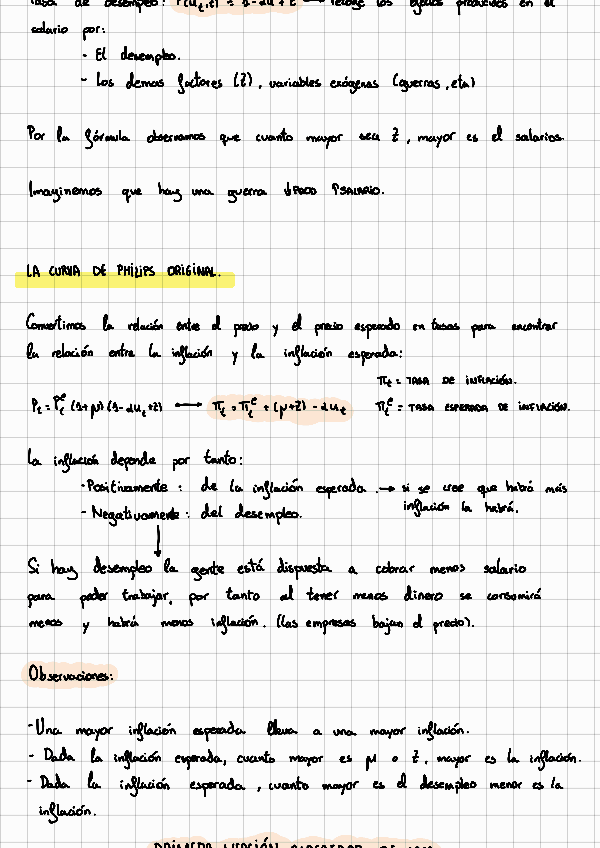 tasa de desempleo: F(ut,z) = 1-αu+z → recoge los efectos producidos en el
salario por:
- El desempleo.
- Los demas factores (Z), variables exógenas (guerras, etc)
Por la fórmula observamos que cuanto mayor sea Z, mayor es el salarios.
Imaginemos que hay una guerra ↓PACO ↑SALARIO.
LA CURVA DE PHILIPS ORIGINAL.
Convertimos la relación entre el precio y el precio esperado en tasas para encontrar
la relación entre la inflación y la inflación esperada:
πt = TASA DE INFLACIÓN.
Pt = Pte (1+μ)(1-αut+z) ⟷ πt = πte + (μ+z) - αut
πte = TASA ESPERADA DE INFLACIÓN.
La inflación depende por tanto:
- Positivamente : de la inflación esperada. → si se cree que habrá más
inflación la habrá.
- Negativamente : del desempleo.
Si hay desempleo la gente está dispuesta a cobrar menos salario
para poder trabajar, por tanto al tener menos dinero se consumirá
menos y habrá menos inflación. (las empresas bajan el precio).
Observaciones:
- Una mayor inflación esperada lleva a una mayor inflación.
- Dada la inflación esperada, cuanto mayor es μ o z, mayor es la inflación.
- Dada la inflación esperada, cuanto mayor es el desempleo menor es la
inflación.